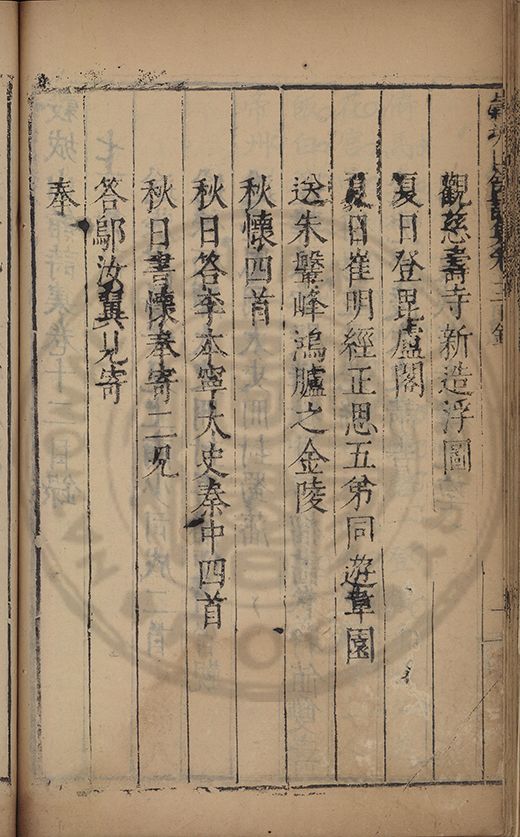 觀慈壽寺新造浮圖
夏日登毘盧閣
夏日崔明經正思五弟同遊韋園
送朱鑾峰鴻臚之金陵
秋懷四首
秋日答李本寧太史秦中四首
秋日書懷奉寄二兄
答鄔汝翼見寄
奉